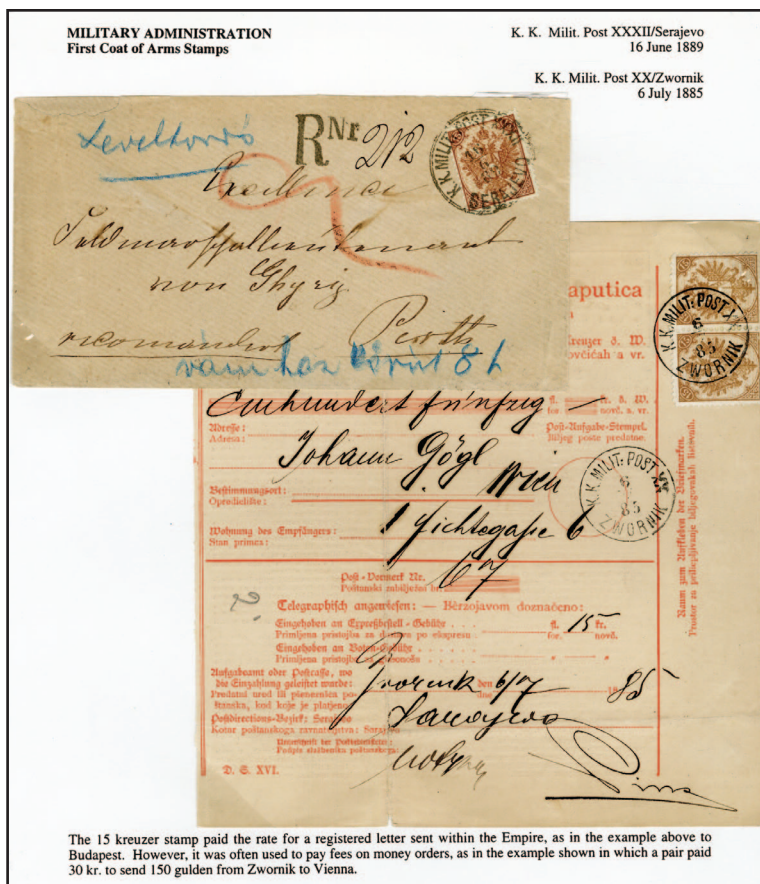 MILITARY ADMINISTRATION
First Coat of Arms Stamps
K. K. Milit. Post XXXII/Serajevo
16 June 1889
K. K. Milit. Post XX/Zwornik
6 July 1885
R Nr 212
K.K. MILIT. POST XXXII
Excellence
Feldmarschallieutenant
von Ghyczy
recomandirt
aputica
Kreuzer ö. W.
K.K. MILIT: POST XX
6
85
ZWORNIK
Einhundert fünfzig —
fl. kr. ö. W.
for. novč. a. vr.
Adresse:
Adresa:
Post-Aufgabs-Stempel.
Biljeg pošte predatne.
Johann Gögl
Wien
Bestimmungsort:
Opredielište:
K.K. MILIT: POST XX
6
85
ZWORNIK
Wohnung des Empfängers:
Stan primca:
1 Fichtegasse 6
Post-Vormerk Nr.
Poštanski zabilježni br.
67
Telegraphisch angewiesen: — Bèrzojavom doznačeno:
Eingehoben an Expreßbestell-Gebühr
fl. 15 kr.
Primljena pristojba za dostavu po ekspresu
for. novč.
Eingehoben an Boten-Gebühr
Primljena pristojba za
Aufgabeamt oder Postcasse, wo
die Einzahlung geleistet wurde:
Predatni ured ili pienezni­ca po-
štanska, kod koje je plaćeno:
Zvornik
den
dne
6/7
85
Postdirections-Bezirk: Serajevo
Kotar poštanskoga ravnateljstva: Sarajevo
Sarajevo
Podpis službenika poštanskoga:
D. S. XVI.
Raum zum Aufkleben der Briefmarken.
Prostor za priliepljivanje biljegovakah listovnih.
The 15 kreuzer stamp paid the rate for a registered letter sent within the Empire, as in the example above to
Budapest. However, it was often used to pay fees on money orders, as in the example shown in which a pair paid
30 kr. to send 150 gulden from Zwornik to Vienna.